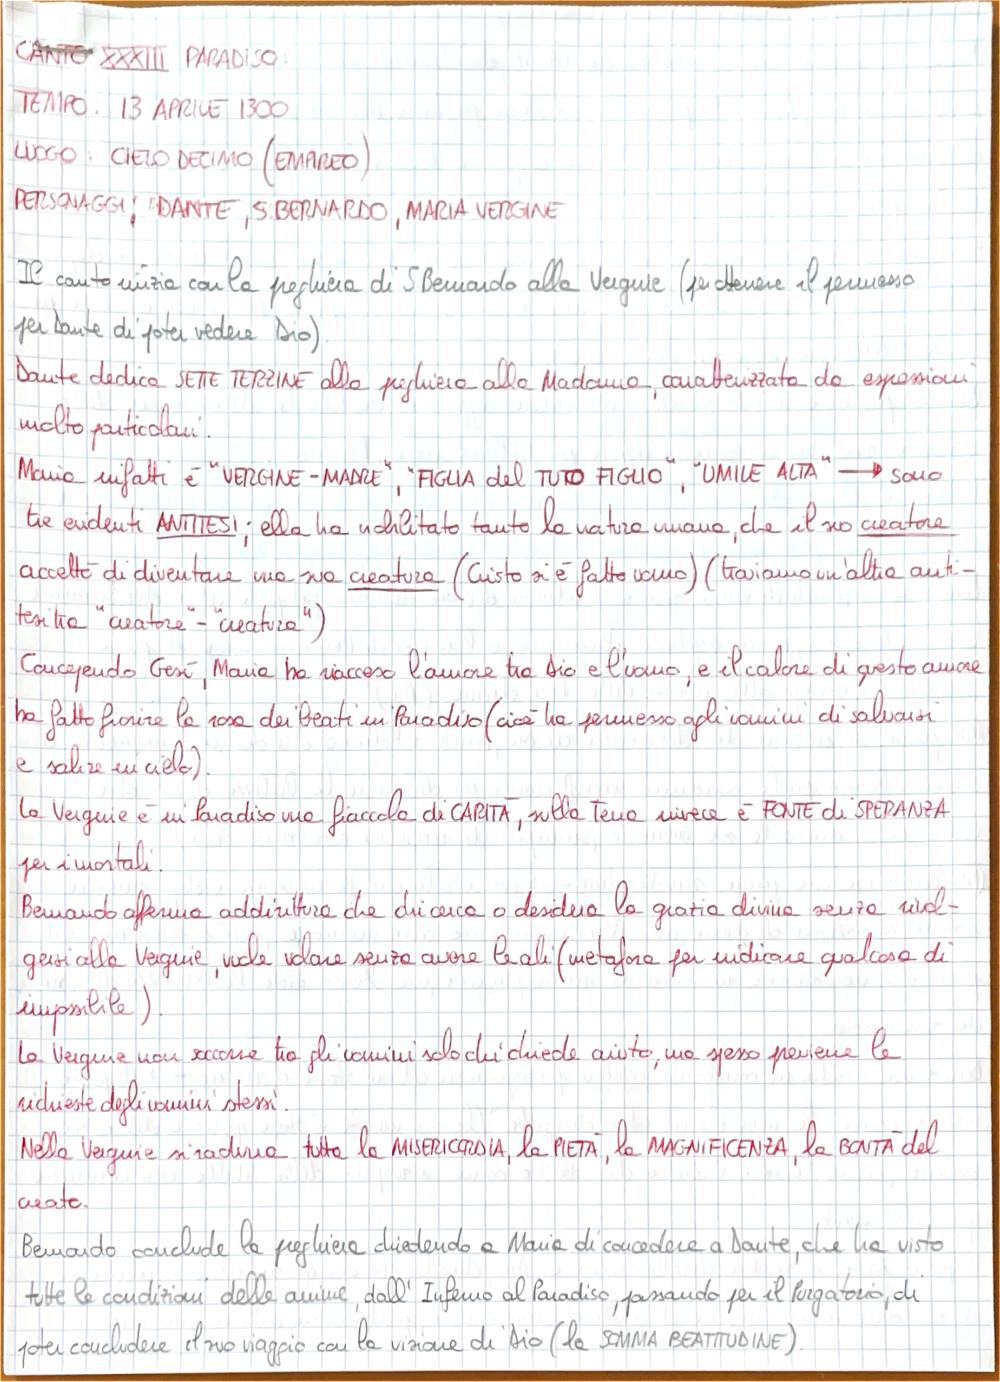 CANTO XXXIII PARADISO.
TEMPO. 13 APRILE 1300
LUOGO: CIELO DECIMO (EMPIREO)
PERSONAGGI: DANTE, S. BERNARDO, MARIA VERGINE
Il canto inizia con la preghiera di S Bernardo alla Vergine (per ottenere il permesso
per Dante di poter vedere Dio).
Dante dedica SETTE TERZINE alla preghiera alla Madonna, caratterizzata da espressioni
molto particolari.
Maria infatti è "VERGINE-MADRE", "FIGLIA del TUO FIGLIO", "UMILE ALTA" → sono
tre evidenti ANTITESI; ella ha nobilitato tanto la natura umana, che il suo creatore
accettò di diventare una sua creatura (Cristo si è fatto uomo) (troviamo un'altra anti-
tesi tra "creatore" - "creatura")
Concependo Gesù, Maria ha riacceso l'amore tra Dio e l'uomo, e il calore di questo amore
ha fatto fiorire la rosa dei Beati in Paradiso (cioè ha permesso agli uomini di salvarsi
e salire in cielo).
La Vergine è in Paradiso una fiaccola di CARITÀ, sulla Terra invece è FONTE di SPERANZA
per i mortali.
Bernardo afferma addirittura che chi cerca o desidera la grazia divina senza rivol-
gersi alla Vergine, vuole volare senza avere le ali (metafora per indicare qualcosa di
impossibile).
La Vergine non soccorre tra gli uomini solo chi chiede aiuto, ma spesso previene le
richieste degli uomini stessi.
Nella Vergine si raduna tutta la MISERICORDIA, la PIETÀ, la MAGNIFICENZA, la BONTÀ del
creato.
Bernardo conclude la preghiera chiedendo a Maria di concedere a Dante, che ha visto
tutte le condizioni delle anime, dall'Inferno al Paradiso, passando per il Purgatorio, di
poter concludere il suo viaggio con la visione di Dio (la SOMMA BEATITUDINE).